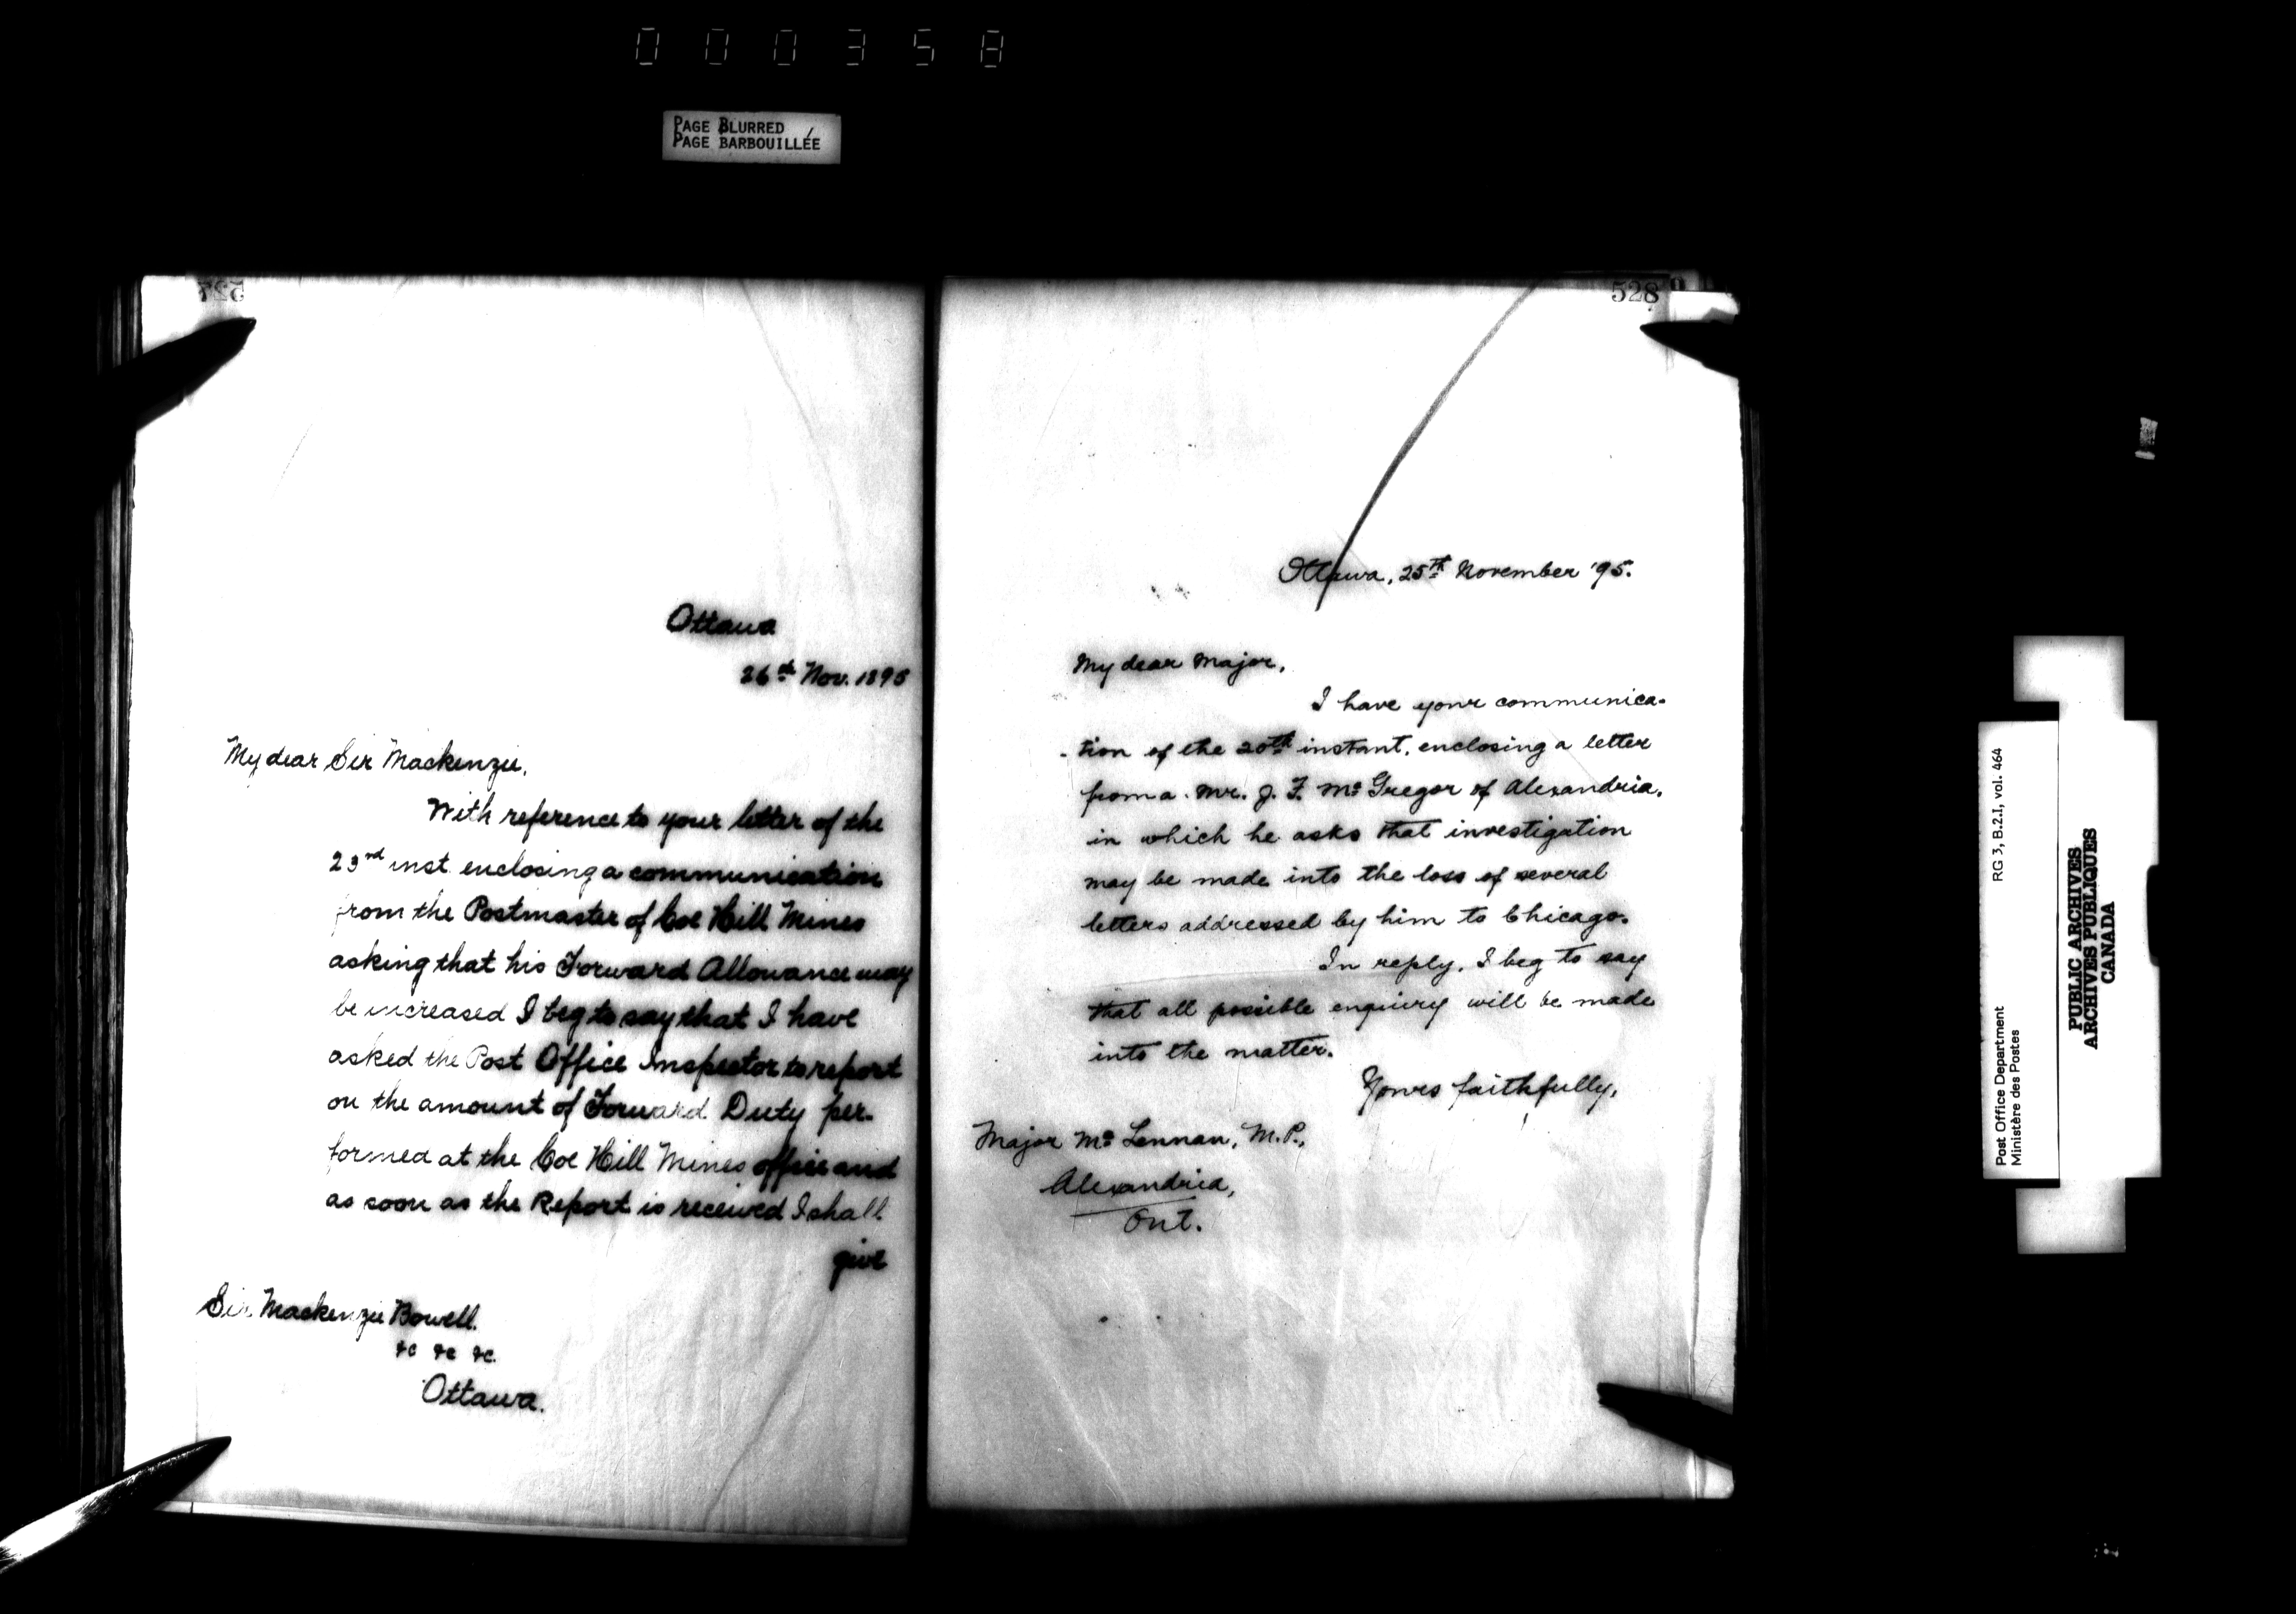 000358
PAGE BLURRED
PAGE BARBOUILLÉE
527
Ottawa
26th Nov. 1895
My dear Sir Mackenzie,
With reference to your letter of the
23rd inst. enclosing a communication
from the Postmaster of Coe Hill Mines
asking that his Forward Allowance may
be increased I beg to say that I have
asked the Post Office Inspector to report
on the amount of Forward Duty per-
formed at the Coe Hill Mines office and
as soon as the Report is received I shall
give
Sir Mackenzie Bowell.
&c &c &c.
Ottawa.
528
Ottawa, 25th November '95.
My dear Major,
I have your communica-
-tion of the 20th instant, enclosing a letter
from a Mr. J. F. McGregor of Alexandria,
in which he asks that investigation
may be made into the loss of several
letters addressed by him to Chicago.
In reply, I beg to say
that all possible enquiry will be made
into the matter.
Yours faithfully,
Major McLennan, M.P.,
Alexandria,
Ont.
RG 3, B.2.I, vol. 464
Post Office Department
Ministère des Postes
PUBLIC ARCHIVES
ARCHIVES PUBLIQUES
CANADA